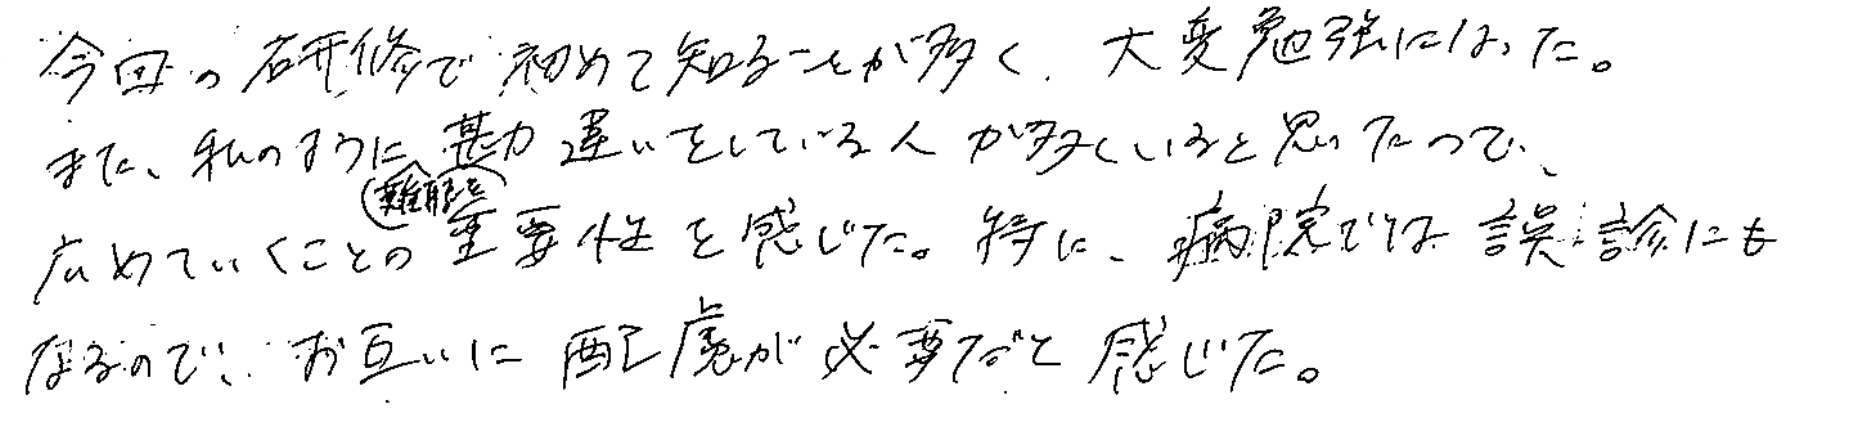 今回の研修で初めて知ることが多く、大変勉強になった。
また、私のように勘違いをしている人が多くいると思ったので、
難聴を
広めていくことの重要性を感じた。特に、病院では誤診にも
なるので、お互いに配慮が必要だと感じた。